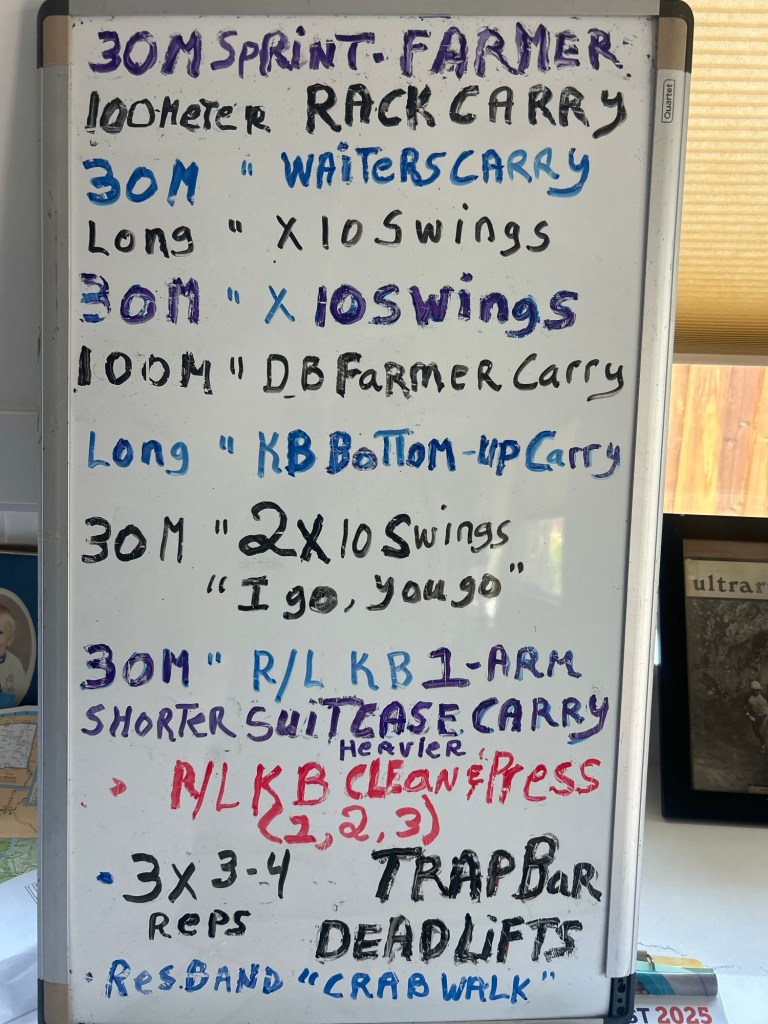 30M SPRINT - FARMER
100METER RACK CARRY
30M " WAITERS CARRY
Long " X 10 Swings
30M " X 10 Swings
100M " DB FARMER Carry
Long " KB BOTTOM-UP Carry
30M " 2X10 Swings
"I go, you go"
30M " R/L KB 1-ARM
SHORTER SUITCASE CARRY
HEAVIER
R/L KB CLEAN & PRESS
(1, 2, 3)
• 3X 3-4 TRAP BAR
REPS DEADLIFTS
• RES. BAND "CRAB WALK"
Quartet
ultrar
ST 2025